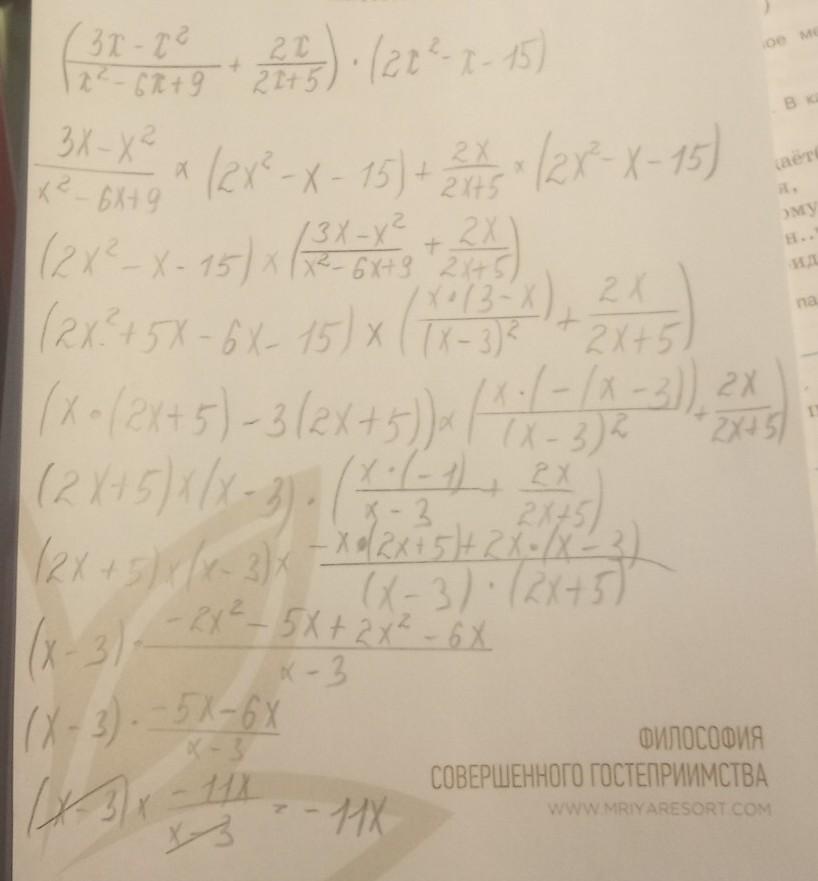 (3x - x²)/(x² - 6x + 9) + 2x/(2x + 5)) · (2x² - x - 15)
(3x - x²)/(x² - 6x + 9) × (2x² - x - 15) + 2x/(2x + 5) × (2x² - x - 15)
(2x² - x - 15) × ((3x - x²)/(x² - 6x + 9) + 2x/(2x + 5))
(2x² + 5x - 6x - 15) × ((x · (3 - x))/((x - 3)²) + 2x/(2x + 5))
(x · (2x + 5) - 3(2x + 5)) × ((x · (-(x - 3)))/((x - 3)²) + 2x/(2x + 5))
(2x + 5) × (x - 3) · ((x · (-1))/(x - 3) + 2x/(2x + 5))
(2x + 5) × (x - 3) × (-x · (2x + 5) + 2x · (x - 3))/((x - 3) · (2x + 5))
(x - 3) · (-2x² - 5x + 2x² - 6x)/(x - 3)
(x - 3) · (-5x - 6x)/(x - 3)
(x - 3) × (-11x)/(x - 3) = -11x
ФИЛОСОФИЯ
СОВЕРШЕННОГО ГОСТЕПРИИМСТВА
WWW.MRIYARESORT.COM